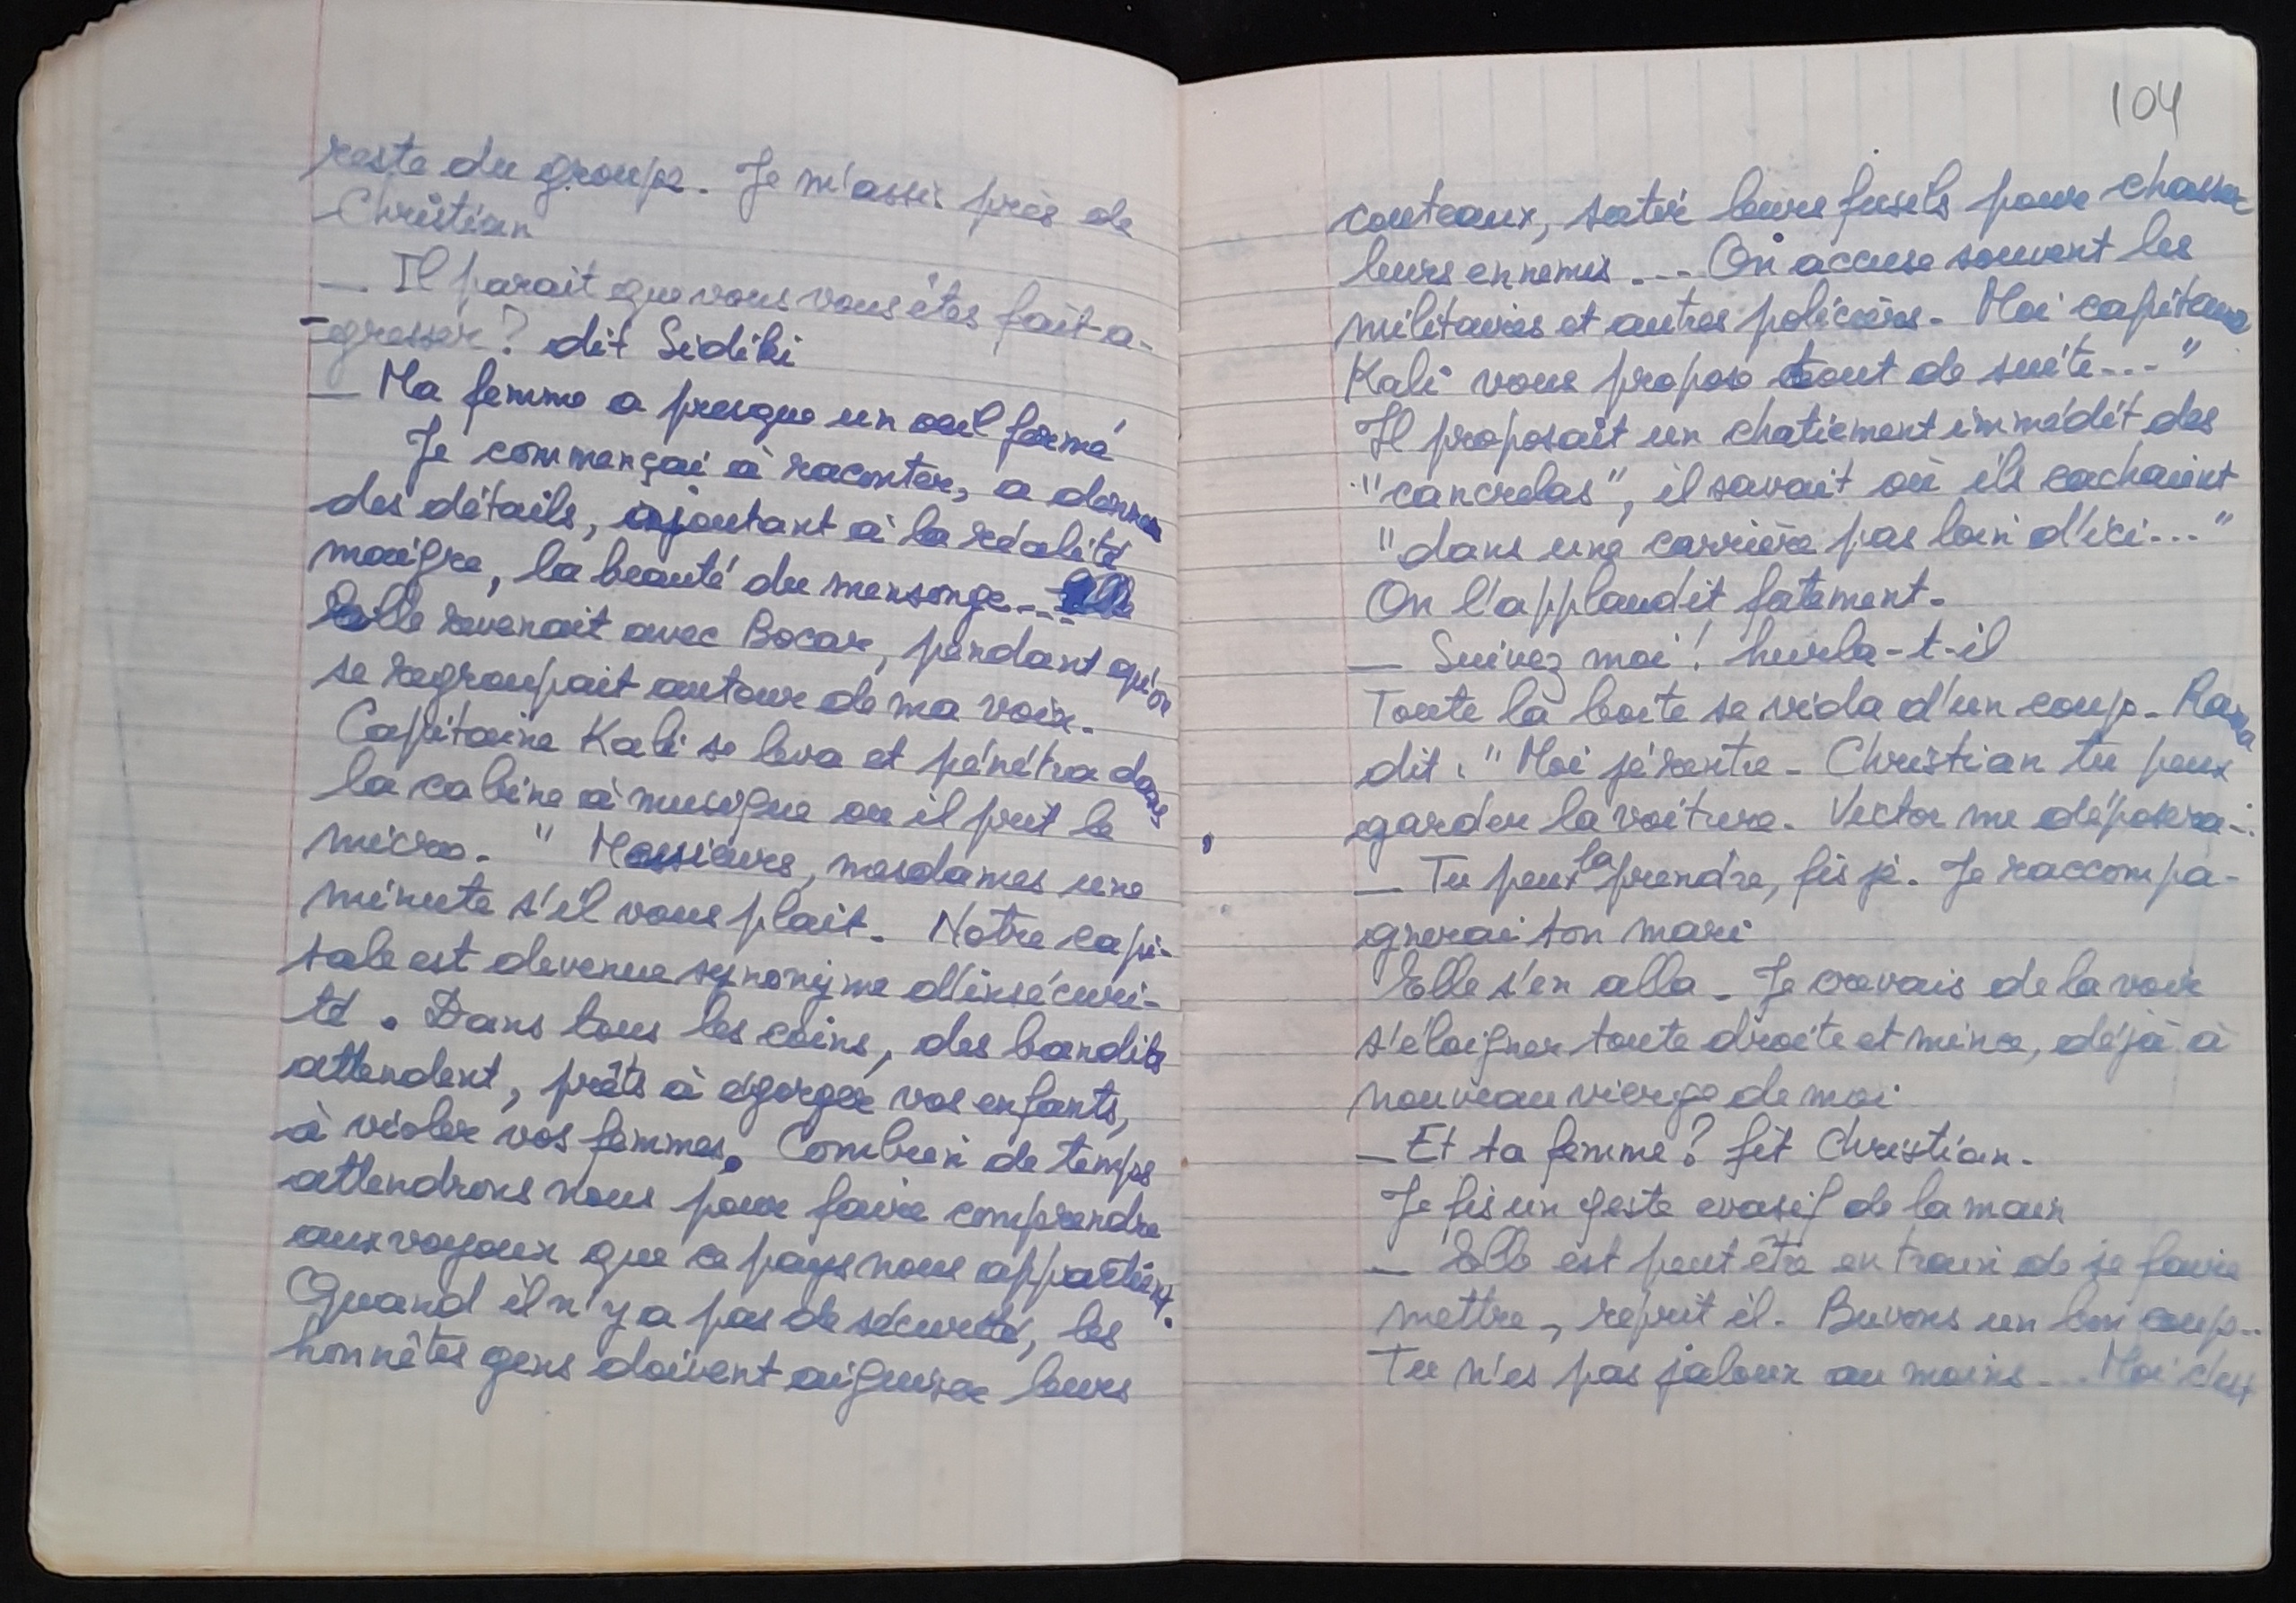 reste du groupe. Je m'assis près de
Christian
— Il parait que vous vous êtes fait a-
-gresser ? dit Sidiki
— Ma femme a presque un oeil fermé
Je commençai à raconter, a donner
des détails, ajoutant à la réalité
maigre, la beauté du mensonge...
Elle revenait avec Bocar, pendant qu'on
se regroupait autour de ma voix.
Capitaine Kali se leva et pénétra dans
la cabine à musique ou il prit le
micro. " Messieurs, mesdames une
minute s'il vous plait. Notre capi-
tale est devenue synonyme d'insécuri-
té. Dans tous les coins, des bandits
attendent, prêts à égorger vos enfants,
à violer vos femmes. Combien de temps
attendrons nous pour faire comprendre
aux voyoux que ce pays nous appartient.
Quand il n'y a pas de sécurité, les
honnêtes gens doivent aiguiser leurs
104
couteaux, sortir leurs fusils pour chasser
leurs ennemis ... On accuse souvent les
militaires et autres policiers. Moi capitaine
Kali vous propose tout de suite..."
Il proposait un chatiement immédit des
"cancrelas", il savait où ils cachaient
"dans une carrière pas loin d'ici..."
On l'applaudit fortement.
— Suivez moi ! hurla-t-il
Toute la boite se vida d'un coup. Rama
dit : " Moi je rentre. Christian tu peux
garder la voiture. Victor me déposera..
— Tu peux la prendre, fis je. Je raccompa-
gnerai ton mari
Elle s'en alla. Je crevais de la voir
s'éloigner toute droite et mince, déjà à
nouveau vierge de moi
— Et ta femme ? fit Christian.
Je fis un geste evasif de la main
— Elle est peut être en train de se faire
mettre, reprit il. Buvons un bon coup..
Tu n'es pas jaloux au moins... Moi c'est